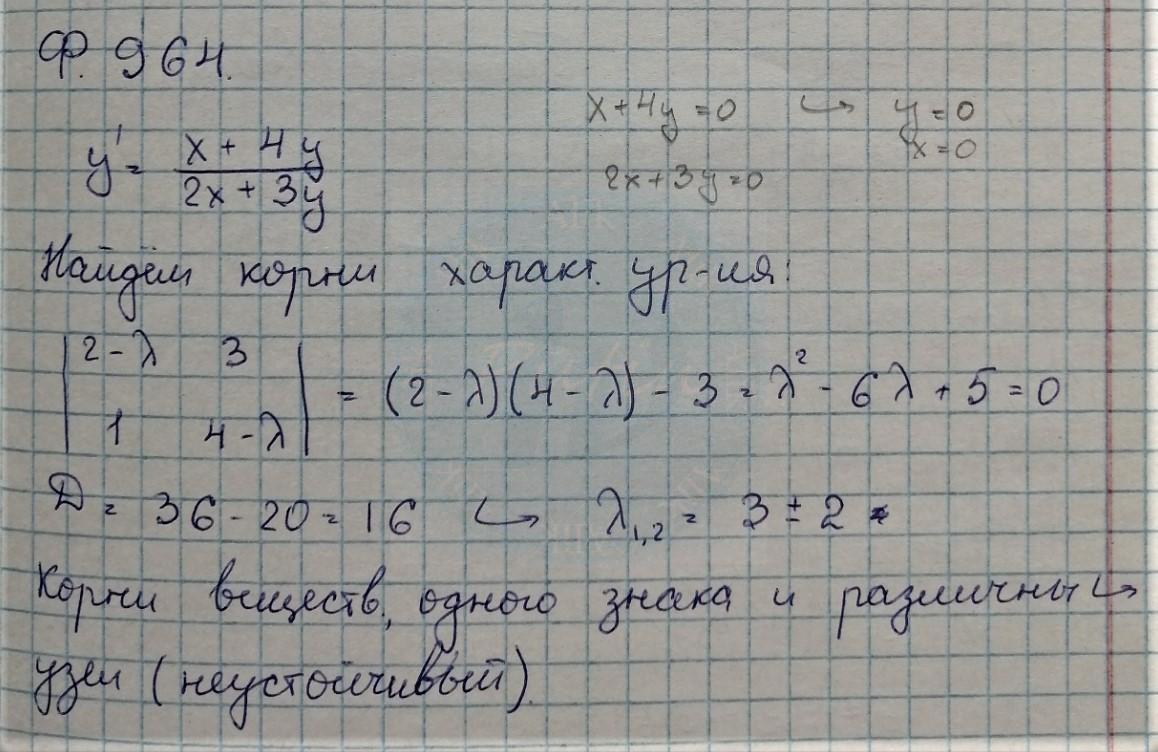 Ф. 964.
x + 4y = 0 ↪ y = 0
x = 0
y' = (x + 4y)/(2x + 3y)
2x + 3y = 0
Найдём корни характ. ур-ия:
|2-λ 3|
|1 4-λ| = (2-λ)(4-λ) - 3 = λ² - 6λ + 5 = 0
D = 36 - 20 = 16 ↪ λ₁,₂ = 3 ± 2
Корни веществ, одного знака и различны ↪
узел (неустойчивый).